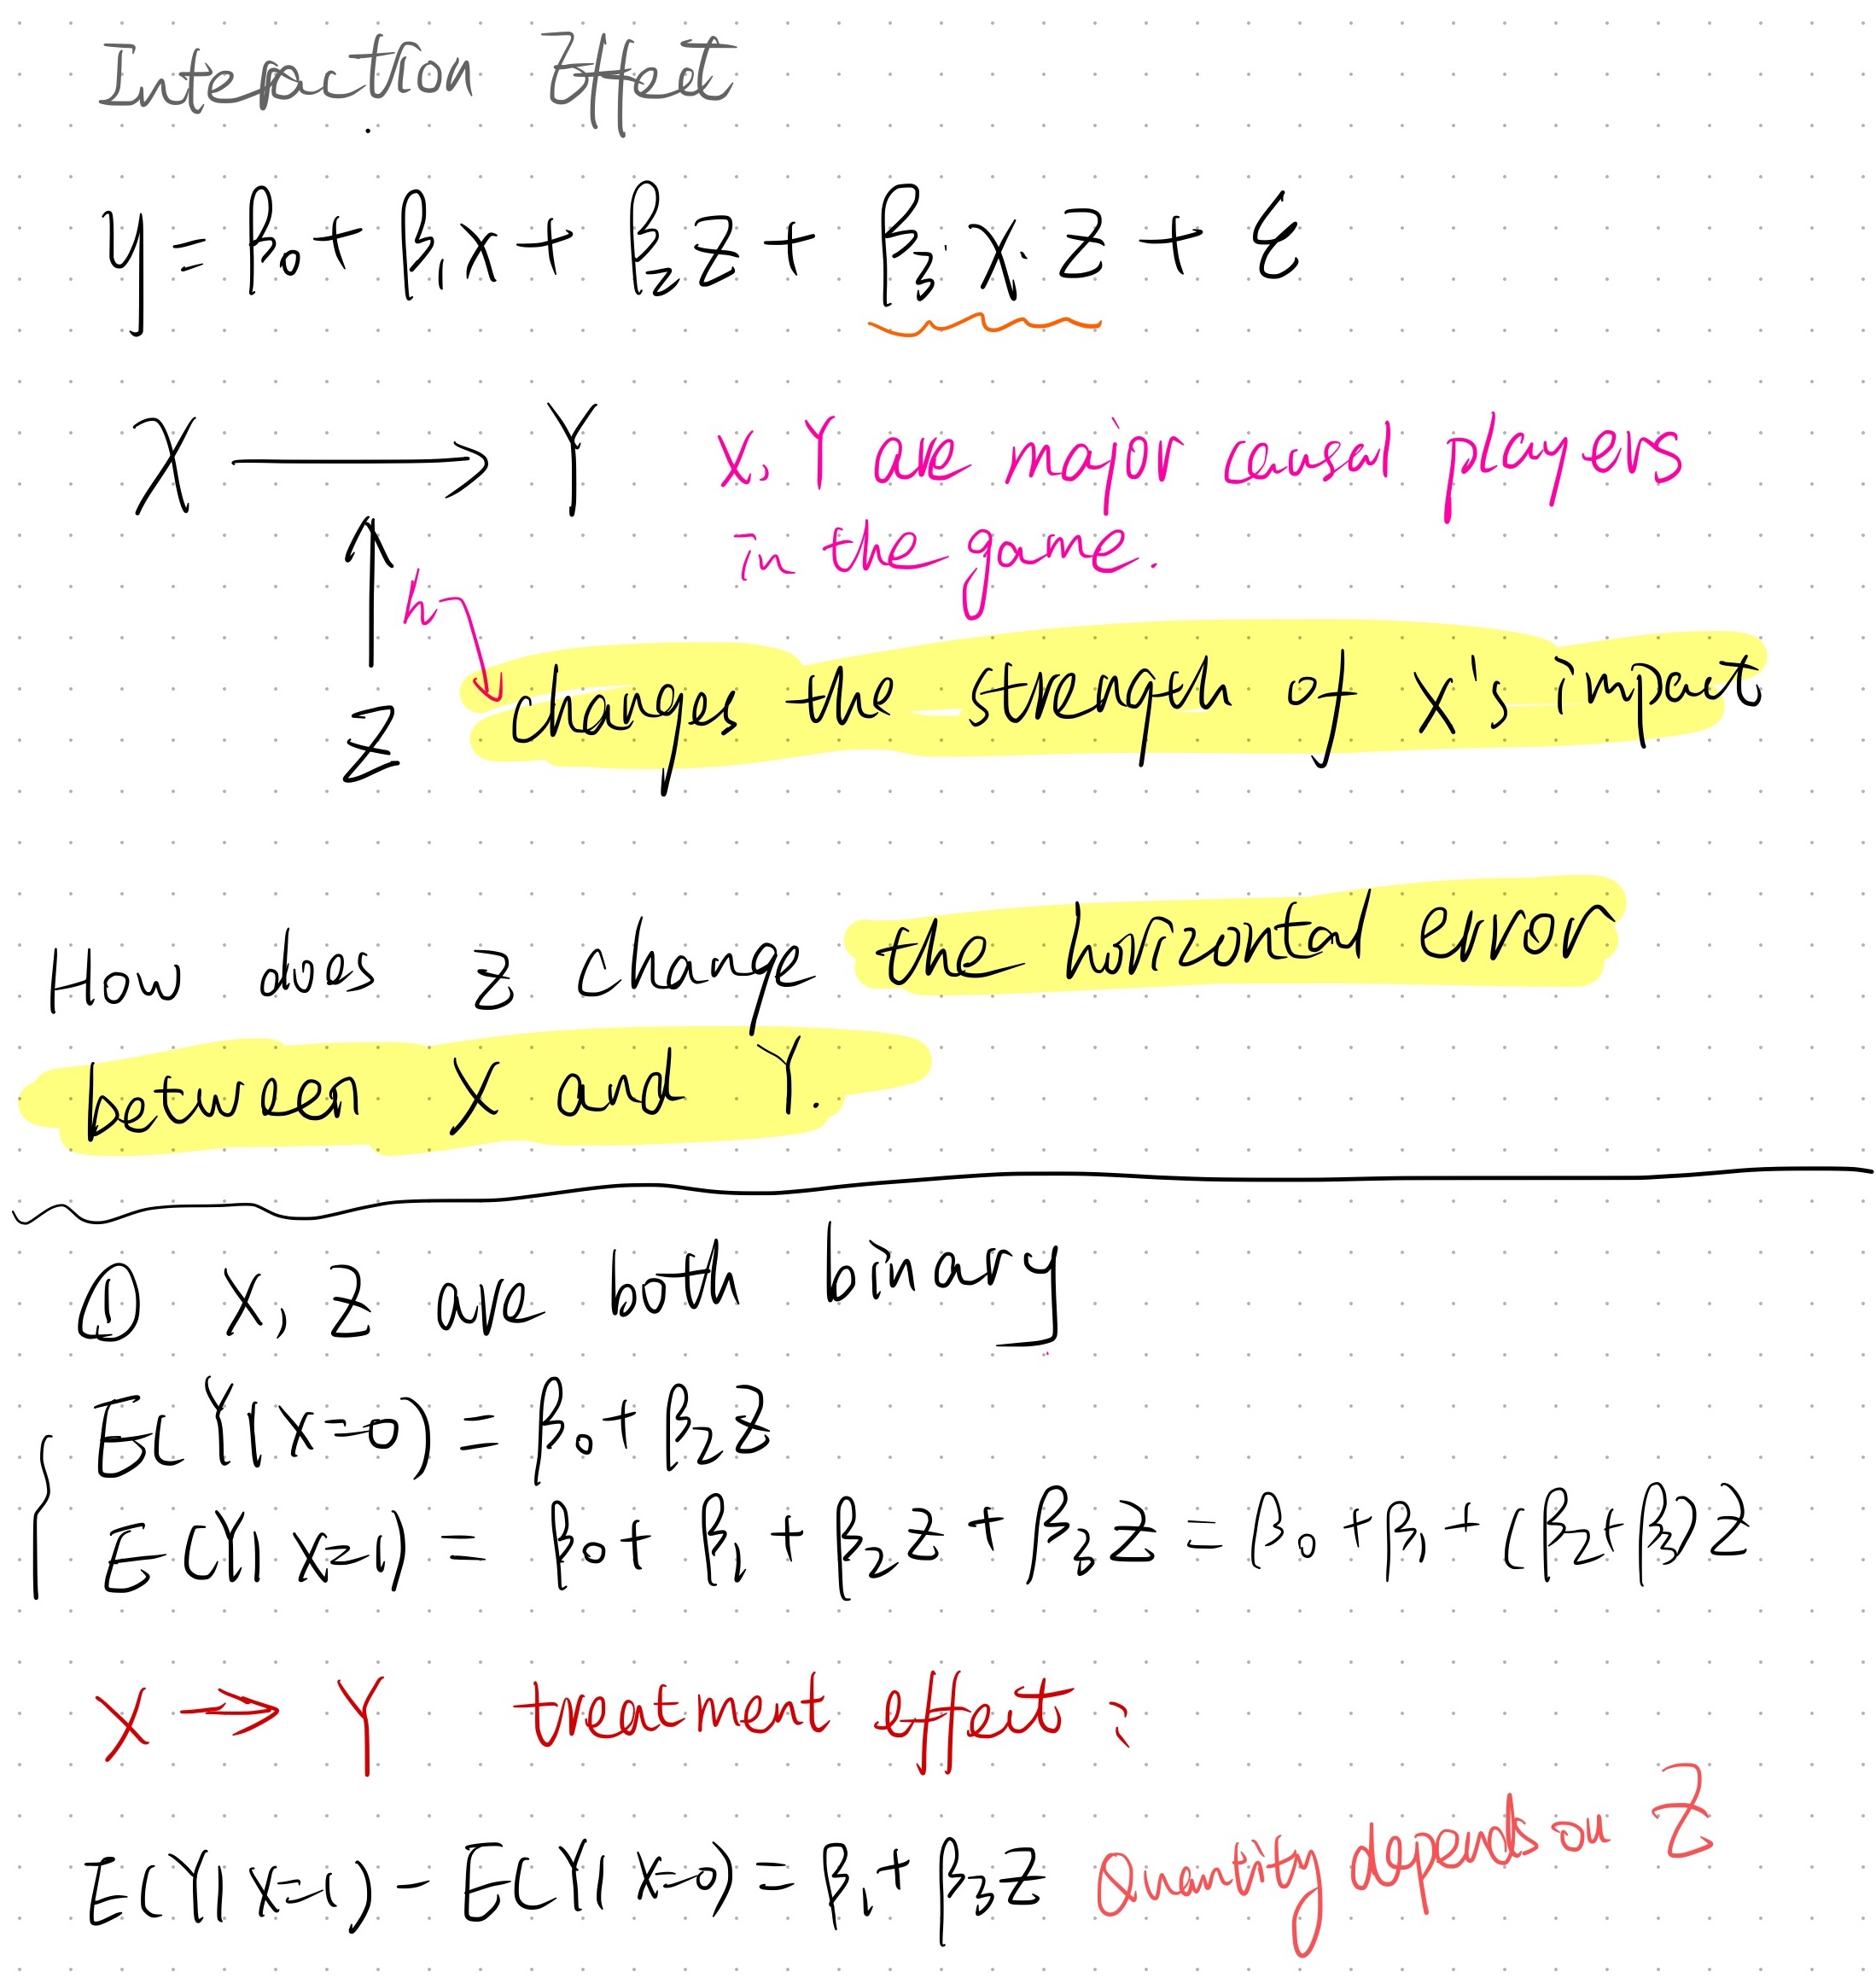 Interaction Effect
y = β₀ + β₁x + β₂z + β₃·x·z + ε
X → Y X, Y are major causal players
in the game.
Z changes the strength of X's impact
How does z change the horizontal error
between X and Y.
① X, Z are both binary
E(Y|X=0) = β₀ + β₂z
E(Y|X=1) = β₀ + β₁ + β₂z + β₃z = β₀ + β₁ + (β₂+β₃)z
X → Y treatment effect:
E(Y|X=1) - E(Y|X=0) = β₁ + β₃z Quantity depends on Z